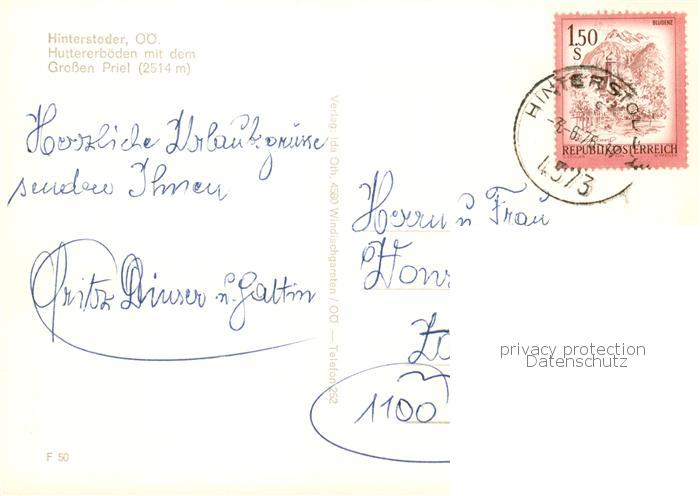 Hinterstoder, OÖ.
Huttererböden mit dem
Großen Priel (2514 m)
Herzliche Urlaubsgrüsse
senden Ihnen
Fritz u. Gattin
F 50
Verlag Idl. Oth. 4580 Windischgarsten / OÖ — Telefon 252
BLUDENZ
1.50
S
REPUBLIK ÖSTERREICH
HINTERSTO
4573
Herrn u Frau
1100
privacy protection
Datenschutz